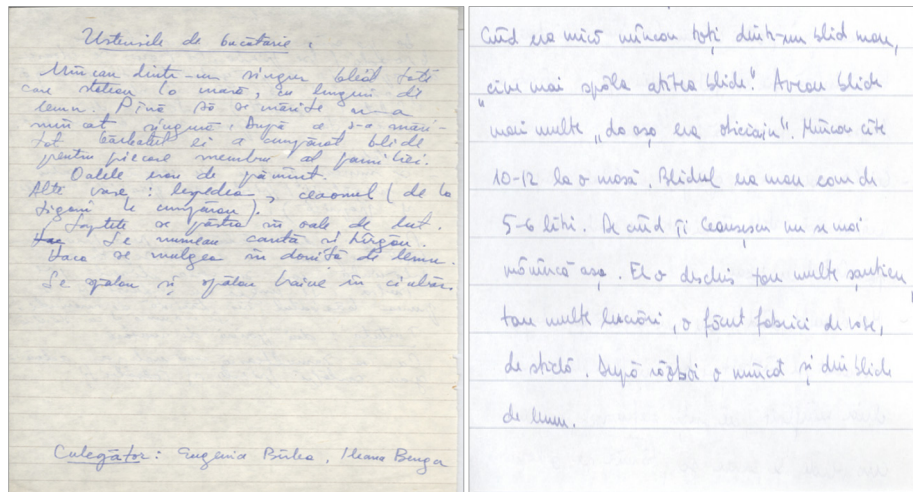 Ustensile de bucătarie:
Mîncau dintr-un singur blid toți
care stăteau la masă, cu linguri de
lemn. Pînă să se mărite n-a
mîncat singură. După ce s-a mări-
tat bărbatul ei a cumpărat blide
pentru fiecare membru al familiei.
Oalele erau de pămînt.
Alte vase: lespedea, ceaonul (de la
țigani le cumpărau).
Laptele se păstra în oale de lut.
Se numeau cantă și hîrgău.
Vaca se mulgea în doniță de lemn.
Se spălau și spălau haine în ciubăr.
Culegător: Eugenia Bîrlea, Ileana Benga
Cînd era mică mîncau toți dintr-un blid mare,
„cine mai spăla atîtea blide". Aveau blide
mai multe „da așa era obiceiu". Mîncau cîte
10-12 la o masă. Blidul era mare cam de
5-6 litri. De cînd îi Ceaușescu nu se mai
mănîncă așa. El o deschis tare multe șantiere,
tare multe lucrări, o făcut fabrici de vase,
de sticlă. După război o mîncat și din blide
de lemn.